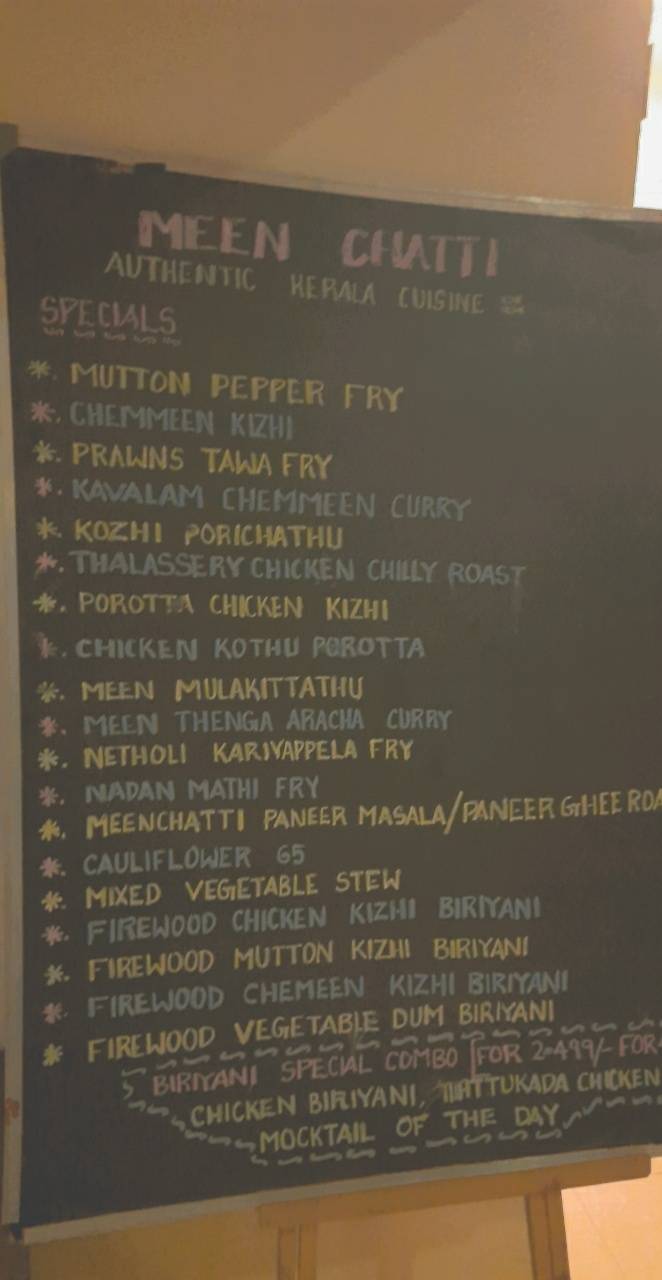 MEEN CHATTI
AUTHENTIC KERALA CUISINE
SPECIALS
*. MUTTON PEPPER FRY
*. CHEMMEEN KIZHI
*. PRAWNS TAWA FRY
*. KAVALAM CHEMMEEN CURRY
*. KOZHI PORICHATHU
*. THALASSERY CHICKEN CHILLY ROAST
*. POROTTA CHICKEN KIZHI
*. CHICKEN KOTHU POROTTA
*. MEEN MULAKITTATHU
*. MEEN THENGA ARACHA CURRY
*. NETHOLI KARIVAPPELA FRY
*. NADAN MATHI FRY
*. MEENCHATTI PANEER MASALA/PANEER GHEE ROA
*. CAULIFLOWER 65
*. MIXED VEGETABLE STEW
*. FIREWOOD CHICKEN KIZHI BIRIYANI
*. FIREWOOD MUTTON KIZHI BIRIYANI
*. FIREWOOD CHEMEEN KIZHI BIRIYANI
* FIREWOOD VEGETABLE DUM BIRIYANI
BIRIYANI SPECIAL COMBO [FOR 2-499/- FOR
CHICKEN BIRIYANI, CHICKEN
MOCKTAIL OF THE DAY